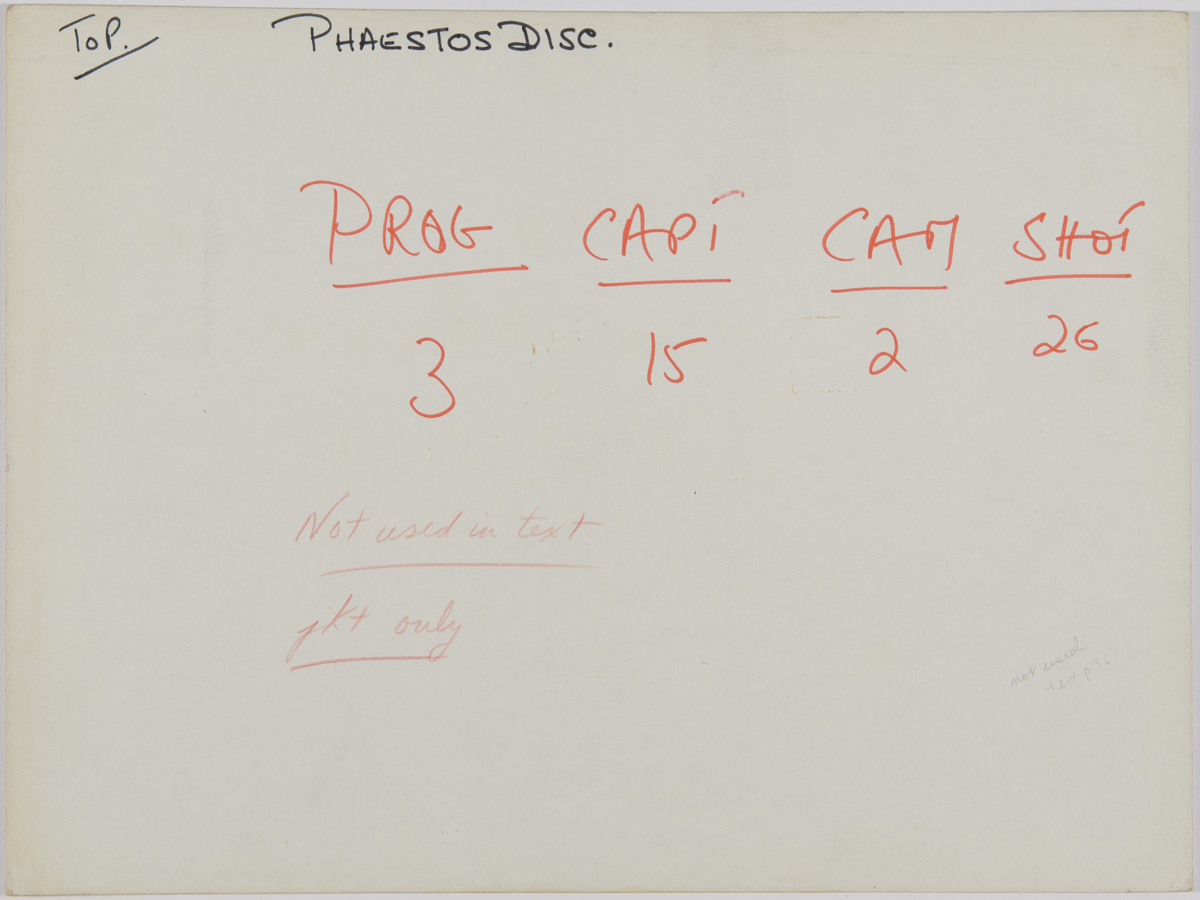 TOP. PHAESTOS DISC.
PROG CAPT CAM SHOT
3 15 2 26
Not used in text
jkt only
not used
text p 36